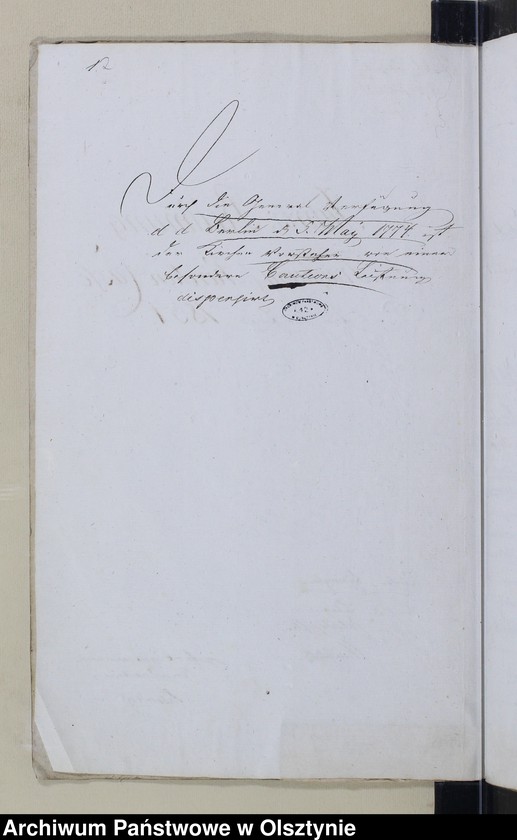 12
Durch die General Verfügung
d d Berlin d 5. May 1774 ist
der Kirchen Vorsteher von einer
besondere Cautions Leistung
dispensirt
12
Archiwum Państwowe w Olsztynie